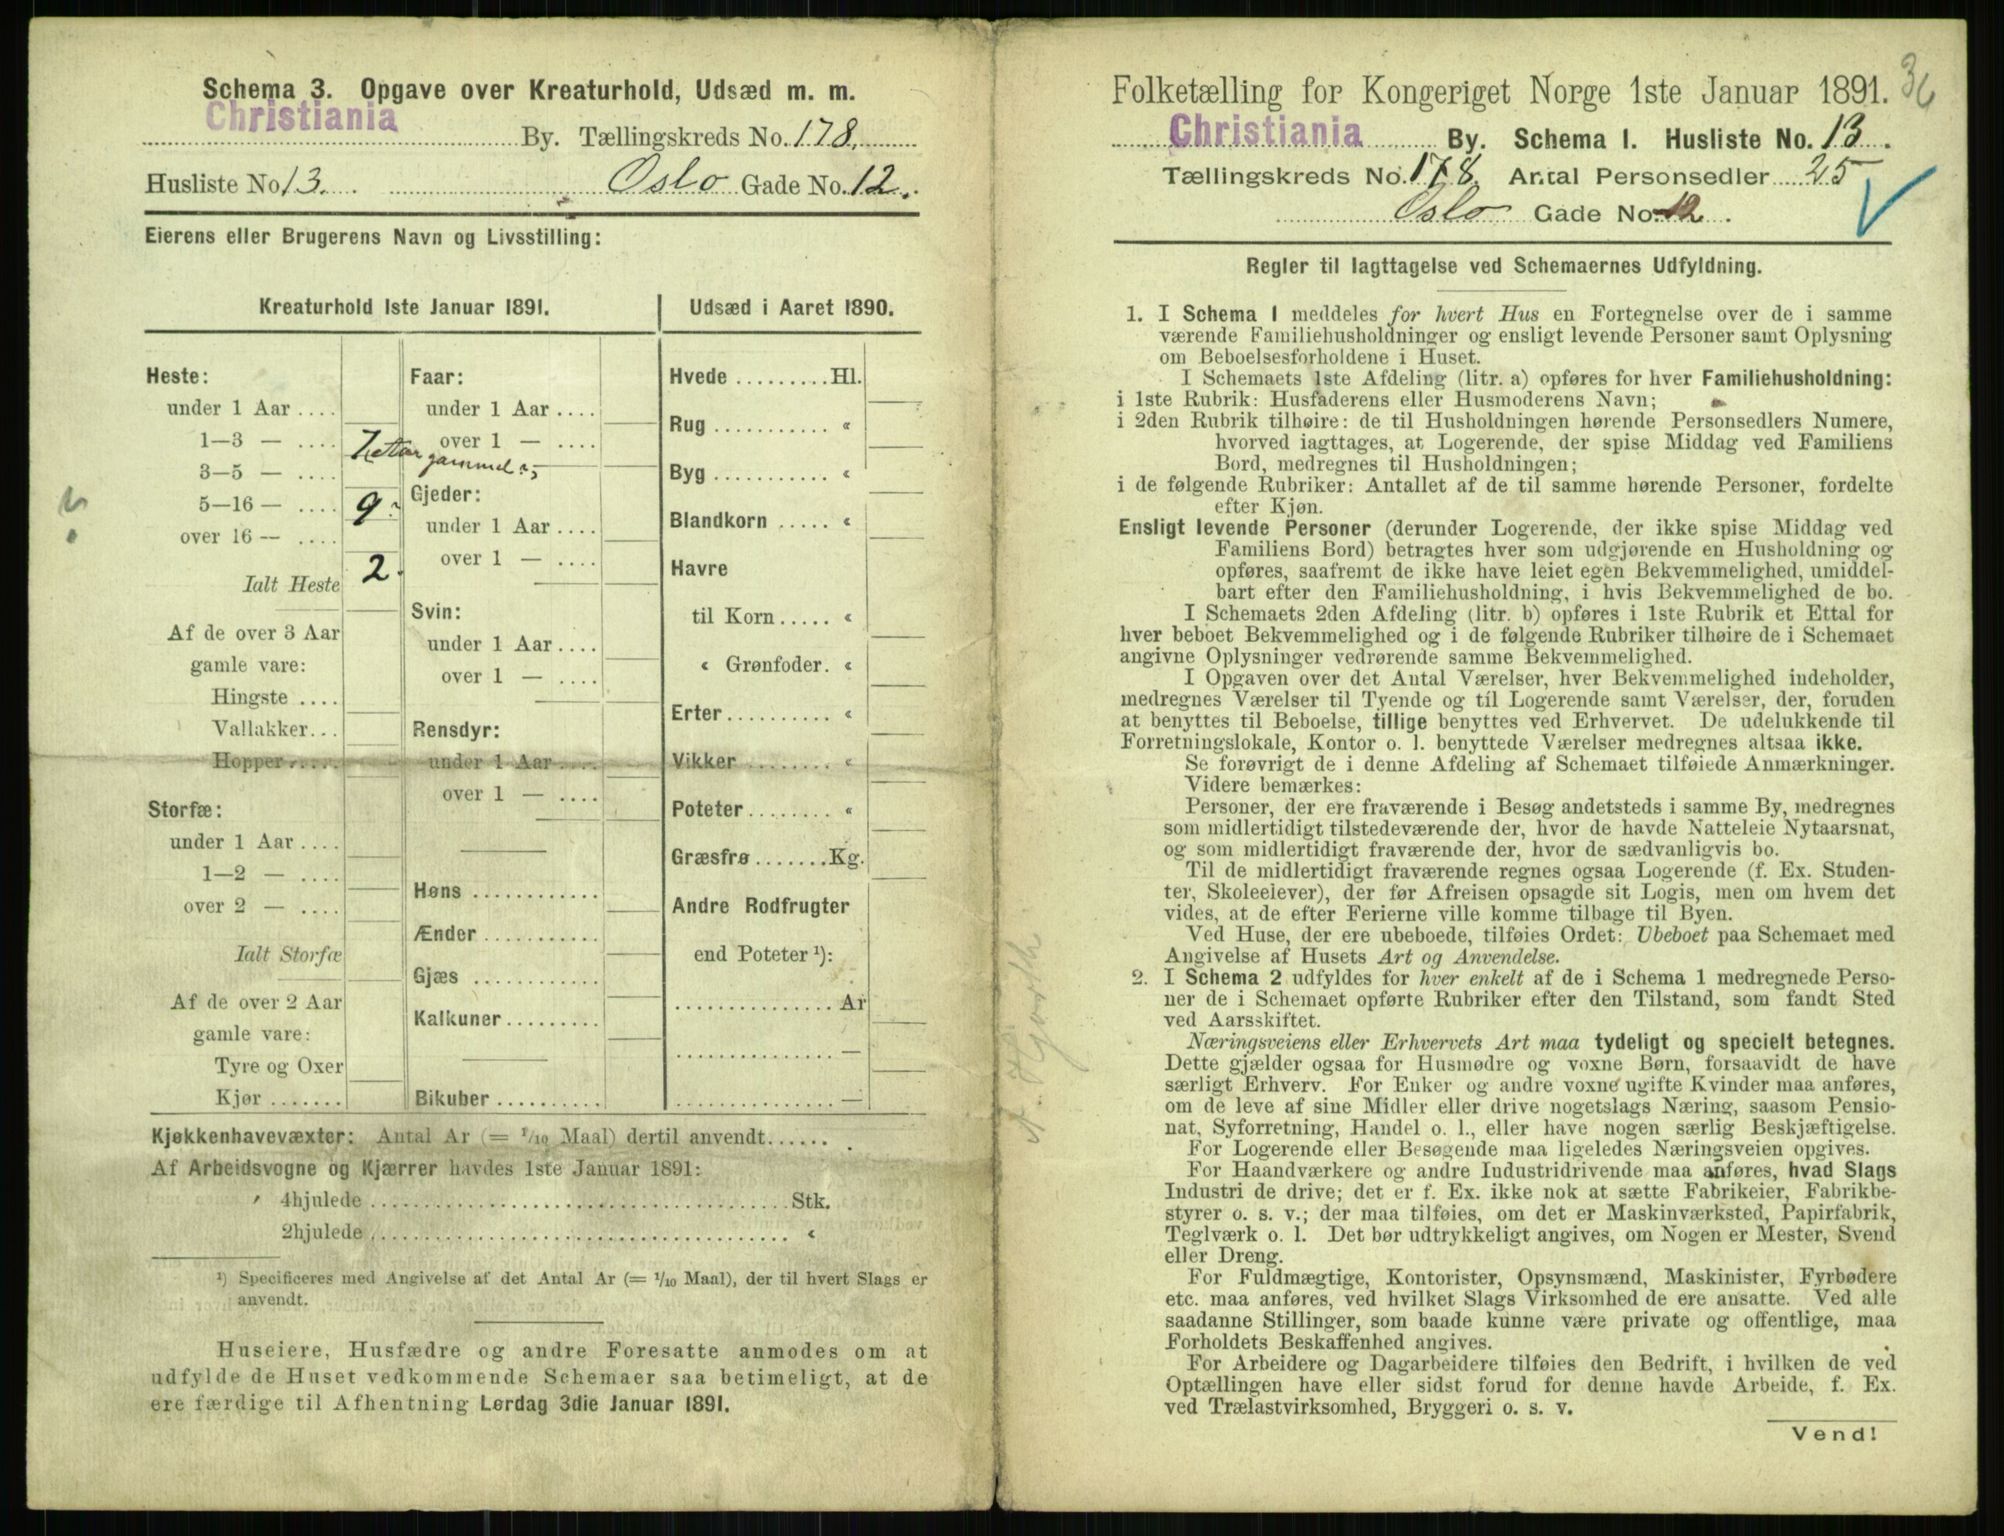 Schema 3. Opgave over Kreaturhold, Udsæd m. m.
Christiania By. Tællingskreds No. 178.
Husliste No 13. Oslo Gade No. 12.
Eierens eller Brugerens Navn og Livsstilling:
Kreaturhold 1ste Januar 1891.
Heste:
under 1 Aar ....
1—3 — ....
3—5 — ....
5—16 — .... 9
over 16 — ....
Ialt Heste 2.
Af de over 3 Aar
gamle vare:
Hingste ....
Vallakker...
Hopper .....
Storfæ:
under 1 Aar ....
1—2 — ....
over 2 — ....
Ialt Storfæ
Af de over 2 Aar
gamle vare:
Tyre og Oxer
Kjør .......
Faar:
under 1 Aar ....
over 1 — ....
gammel
Gjeder:
under 1 Aar ....
over 1 — ....
Svin:
under 1 Aar ....
over 1 — ....
Rensdyr:
under 1 Aar ....
over 1 — ....
Høns ............
Ænder ...........
Gjæs ............
Kalkuner.........
Bikuber ..........
Udsæd i Aaret 1890.
Hvede .........Hl.
Rug ........... «
Byg ........... «
Blandkorn ..... «
Havre
til Korn ..... «
« Grønfoder. «
Erter.......... «
Vikker ........ «
Poteter........ «
Græsfrø .......Kg.
Andre Rodfrugter
end Poteter ¹):
............... Ar
............... —
............... —
Kjøkkenhavevæxter: Antal Ar (= 1/10 Maal) dertil anvendt......
Af Arbeidsvogne og Kjærrer havdes 1ste Januar 1891:
4hjulede ....................................Stk.
2hjulede .................................... «
¹) Specificeres med Angivelse af det Antal Ar (= 1/10 Maal), der til hvert Slags er
anvendt.
Huseiere, Husfædre og andre Foresatte anmodes om at
udfylde de Huset vedkommende Schemaer saa betimeligt, at de
ere færdige til Afhentning Lørdag 3die Januar 1891.
36
Folketælling for Kongeriget Norge 1ste Januar 1891.
Christiania By. Schema 1. Husliste No. 13.
Tællingskreds No. 178. Antal Personsedler 25
Oslo Gade No. 12.
Regler til Iagttagelse ved Schemaernes Udfyldning.
1. I Schema 1 meddeles for hvert Hus en Fortegnelse over de i samme
værende Familiehusholdninger og ensligt levende Personer samt Oplysning
om Beboelsesforholdene i Huset.
I Schemaets 1ste Afdeling (litr. a) opføres for hver Familiehusholdning:
i 1ste Rubrik: Husfaderens eller Husmoderens Navn;
i 2den Rubrik tilhøire: de til Husholdningen hørende Personsedlers Numere,
hvorved iagttages, at Logerende, der spise Middag ved Familiens
Bord, medregnes til Husholdningen;
i de følgende Rubriker: Antallet af de til samme hørende Personer, fordelte
efter Kjøn.
Ensligt levende Personer (derunder Logerende, der ikke spise Middag ved
Familiens Bord) betragtes hver som udgjørende en Husholdning og
opføres, saafremt de ikke have leiet egen Bekvemmelighed, umiddel-
bart efter den Familiehusholdning, i hvis Bekvemmelighed de bo.
I Schemaets 2den Afdeling (litr. b) opføres i 1ste Rubrik et Ettal for
hver beboet Bekvemmelighed og i de følgende Rubriker tilhøire de i Schemaet
angivne Oplysninger vedrørende samme Bekvemmelighed.
I Opgaven over det Antal Værelser, hver Bekvemmelighed indeholder,
medregnes Værelser til Tyende og til Logerende samt Værelser, der, foruden
at benyttes til Beboelse, tillige benyttes ved Erhvervet. De udelukkende til
Forretningslokale, Kontor o. l. benyttede Værelser medregnes altsaa ikke.
Se forøvrigt de i denne Afdeling af Schemaet tilføiede Anmærkninger.
Videre bemærkes:
Personer, der ere fraværende i Besøg andetsteds i samme By, medregnes
som midlertidigt tilstedeværende der, hvor de havde Natteleie Nytaarsnat,
og som midlertidigt fraværende der, hvor de sædvanligvis bo.
Til de midlertidigt fraværende regnes ogsaa Logerende (f. Ex. Studen-
ter, Skoleelever), der før Afreisen opsagde sit Logis, men om hvem det
vides, at de efter Ferierne ville komme tilbage til Byen.
Ved Huse, der ere ubeboede, tilføies Ordet: Ubeboet paa Schemaet med
Angivelse af Husets Art og Anvendelse.
2. I Schema 2 udfyldes for hver enkelt af de i Schema 1 medregnede Perso-
ner de i Schemaet opførte Rubriker efter den Tilstand, som fandt Sted
ved Aarsskiftet.
Næringsveiens eller Erhvervets Art maa tydeligt og specielt betegnes.
Dette gjælder ogsaa for Husmødre og voxne Børn, forsaavidt de have
særligt Erhverv. For Enker og andre voxne ugifte Kvinder maa anføres,
om de leve af sine Midler eller drive nogetslags Næring, saasom Pensio-
nat, Syforretning, Handel o. l., eller have nogen særlig Beskjæftigelse.
For Logerende eller Besøgende maa ligeledes Næringsveien opgives.
For Haandværkere og andre Industridrivende maa anføres, hvad Slags
Industri de drive; det er f. Ex. ikke nok at sætte Fabrikeier, Fabrikbe-
styrer o. s. v.; der maa tilføies, om det er Maskinværksted, Papirfabrik,
Teglværk o. l. Det bør udtrykkeligt angives, om Nogen er Mester, Svend
eller Dreng.
For Fuldmægtige, Kontorister, Opsynsmænd, Maskinister, Fyrbødere
etc. maa anføres, ved hvilket Slags Virksomhed de ere ansatte. Ved alle
saadanne Stillinger, som baade kunne være private og offentlige, maa
Forholdets Beskaffenhed angives.
For Arbeidere og Dagarbeidere tilføies den Bedrift, i hvilken de ved
Optællingen have eller sidst forud for denne havde Arbeide, f. Ex.
ved Trælastvirksomhed, Bryggeri o. s. v.
Vend!